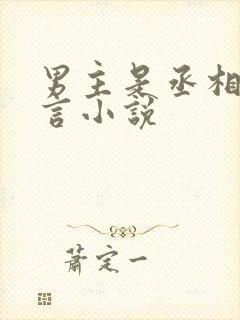 男主是丞相
言小说
萧定一